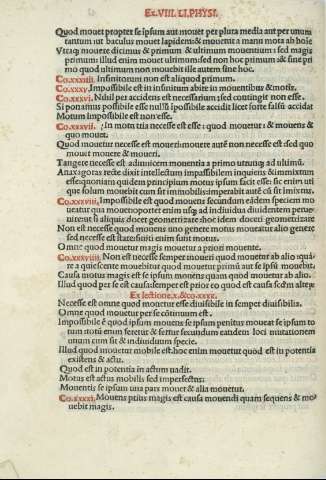 Ex. VIII. LI. PHYSI.
Quod mouet propter se ipsum aut mouet per plura media aut per unum
tantum: ut baculus mouet lapidem: & mouetur a manu mota ab hoĩe
Vtraq; mouere dicimus & primum & ultimum mouentium: sed magis
primum: illud enim mouet ultimum: sed non hoc primum: & sine pri
mo quod ultimum non mouebit ille autem sine hoc.
Co.xxxiiii. Infinitorum non est aliquod primum.
Co.xxxv. Impossibile est in infinitum abire in mouentibus & motis.
Co.xxxvi. Nihil per accidens est necessarium: sed contingit non esse.
Si ponamus possibile esse nullũ ĩpossibile accidit licet forte falsũ accidat
Motum impossibile est non esse.
Co.xxxvii. In motu tria necesse est esse: quod mouetur: & mouens &
quo mouet.
Quod mouetur necesse est moueri: mouere autẽ non necesse est sed quo
mouet mouere & moueri.
Tangere necesse est adinuicem mouentia a primo usque ad ultimũ.
Anaxagoras recte dixit intellectum impassibilem inquiens & immixtum
esse: quoniam quidem principium motus ipsum facit esse: sic enim uti
que solum mouebit cum sit immobilis: imperabit autẽ cũ sit immixtus.
Co.xxxviii. Impossibile est quod mouens secundum eãdem speciem mo
ueatur qua mouet: oportet enim usq; ad indiuidua diuidentem perue-
nire: ut si aliquis docet geometrizare: hoc idem doceri geometrizare
Non est necesse quod mouens uno genere motus moueatur alio genere
sed necesse est stare: finiti enim sunt motus.
Omne quod mouetur magis mouetur a priori mouente.
Co.xxxviiii. Non est necesse semper moueri quod mouetur ab alio: quia
re a quiescente mouebitur quod mouetur primũ aut se ipsũ mouebit.
Causa motus magis est se ipsum mouens quam quod mouetur ab alio.
Illud quod per se est causa: semper est prior eo quod est causa scdm alterẽ
Ex lectione.x.& co.xxxx.
Necesse est omne quod mouetur esse diuisibile in semper diuisibilia.
Omne quod mouetur per se cõtinuum est.
Impossibile ẽ quod ipsum mouens se ipsum penitus moueat se ipsum to
tum: totũ enim feretur & fertur secundum eandem loci mutationem
unum cum sit & indiuiduum specie.
Illud quod mouetur mobile est: hoc enim mouetur quod est in potentia
existens & actu.
Quod est in potentia in actum uadit.
Motus est actus mobilis sed imperfectus:
Mouentis se ipsum una pars mouet & alia mouetur.
Co.xxxxi. Mouens prius magis est causa mouendi quam sequens & mo
uebit magis.